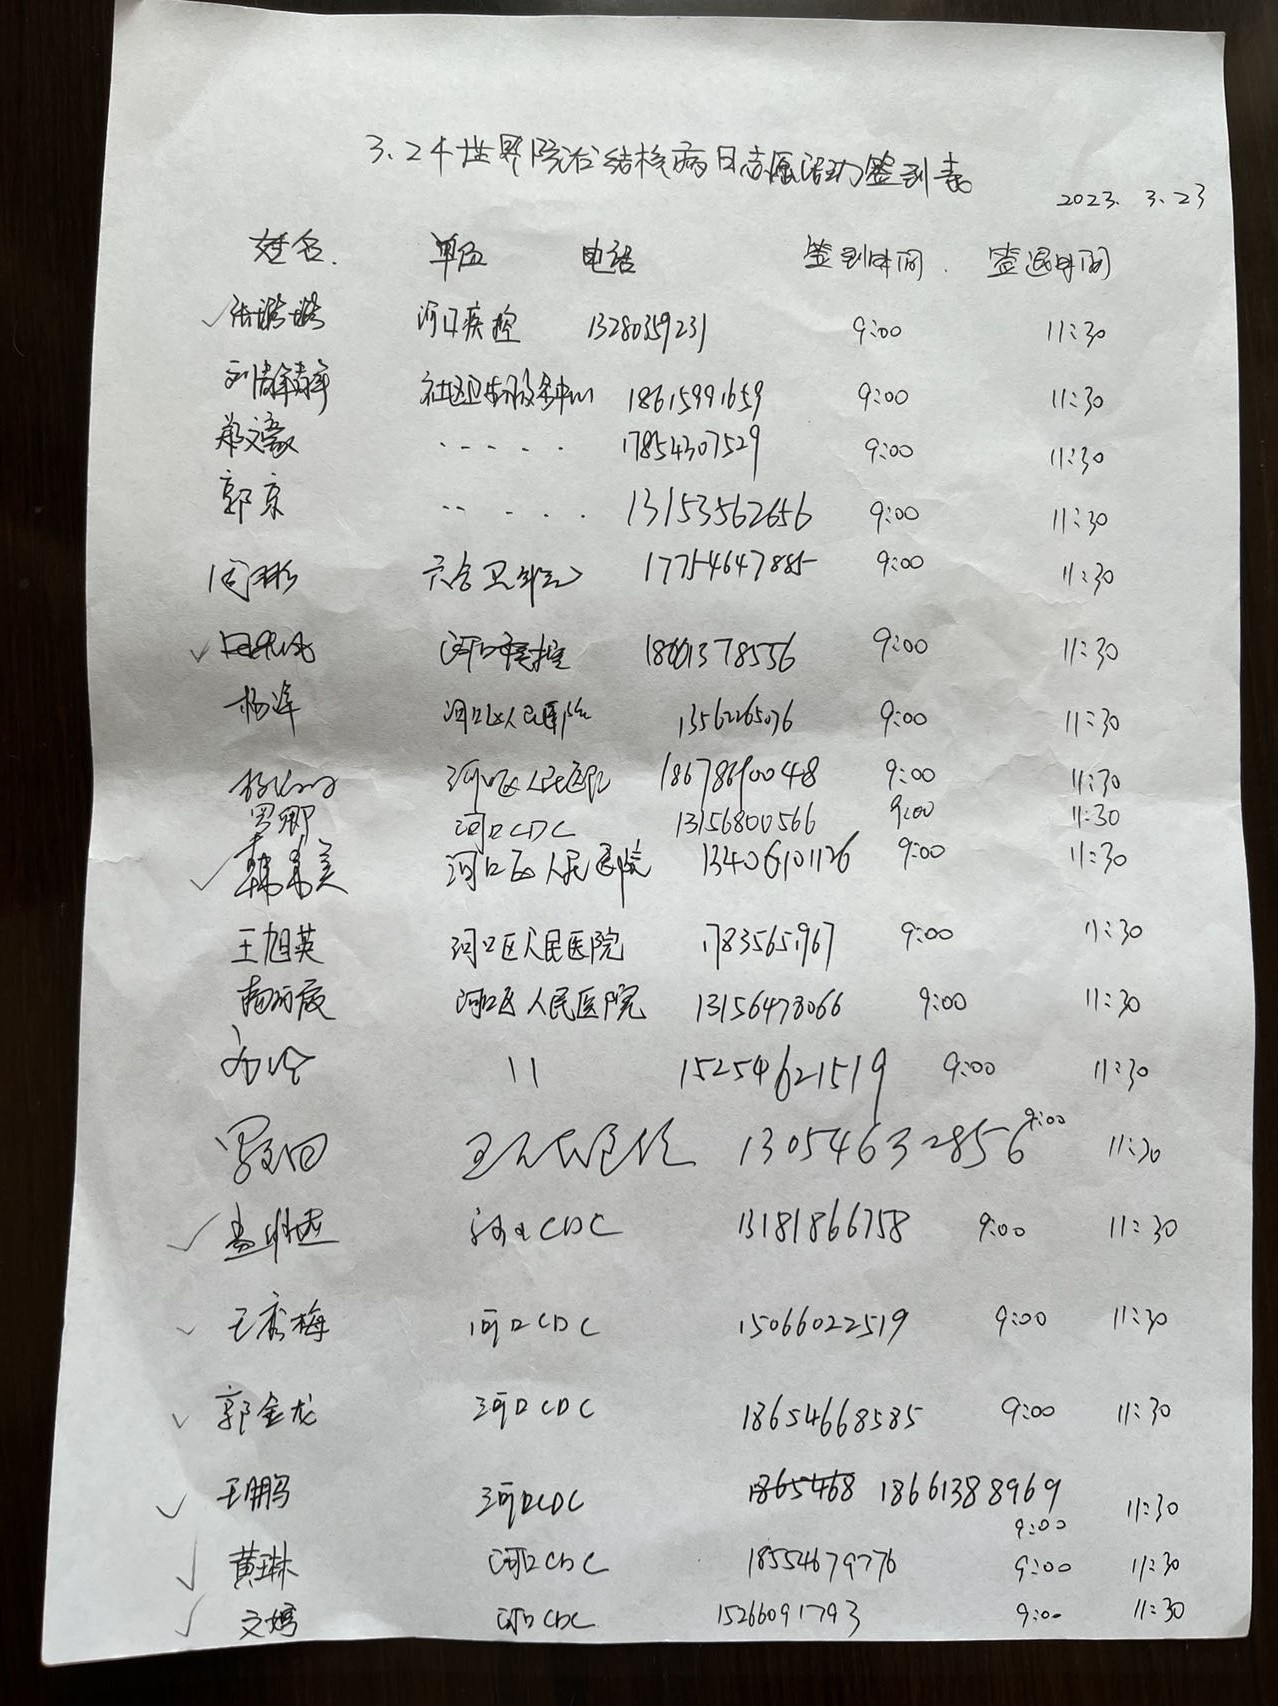 3.24世界防治结核病日志愿活动签到表
2023. 3.23
姓名. 单位 电话 签到时间. 签退时间
✓ 张璐璐 河口疾控 13280359231 9:00 11:30
刘 社区卫生服务中心 18615991659 9:00 11:30
郑文豪 - - - - . 17854307529 9:00 11:30
郭京 -- - - - . 13153562656 9:00 11:30
闫彬 六合卫生院 17754647885 9:00 11:30
✓ 河口疾控 18661378556 9:00 11:30
杨洋 河口区人民医院 9:00 11:30
河口区人民医院 18678690048 9:00 11:30
河口CDC 13156800566 9:00 11:30
✓ 韩希美 河口区人民医院 13406101126 9:00 11:30
王旭英 河口区人民医院 17835651967 9:00 11:30
河口区人民医院 13156478066 9:00 11:30
11 15254621519 9:00 11:30
人民医院 13054632856 9:00 11:30
✓ 河口CDC 13181866758 9:00 11:30
✓ 王秀梅 河口CDC 15066022519 9:00 11:30
✓ 郭金龙 河口CDC 18654668585 9:00 11:30
✓ 王鹏 河口CDC 1865468 18661388969 9:00 11:30
✓ 黄琳 河口CDC 18554679776 9:00 11:30
✓ 文婷 河口CDC 15266091793 9:00 11:30